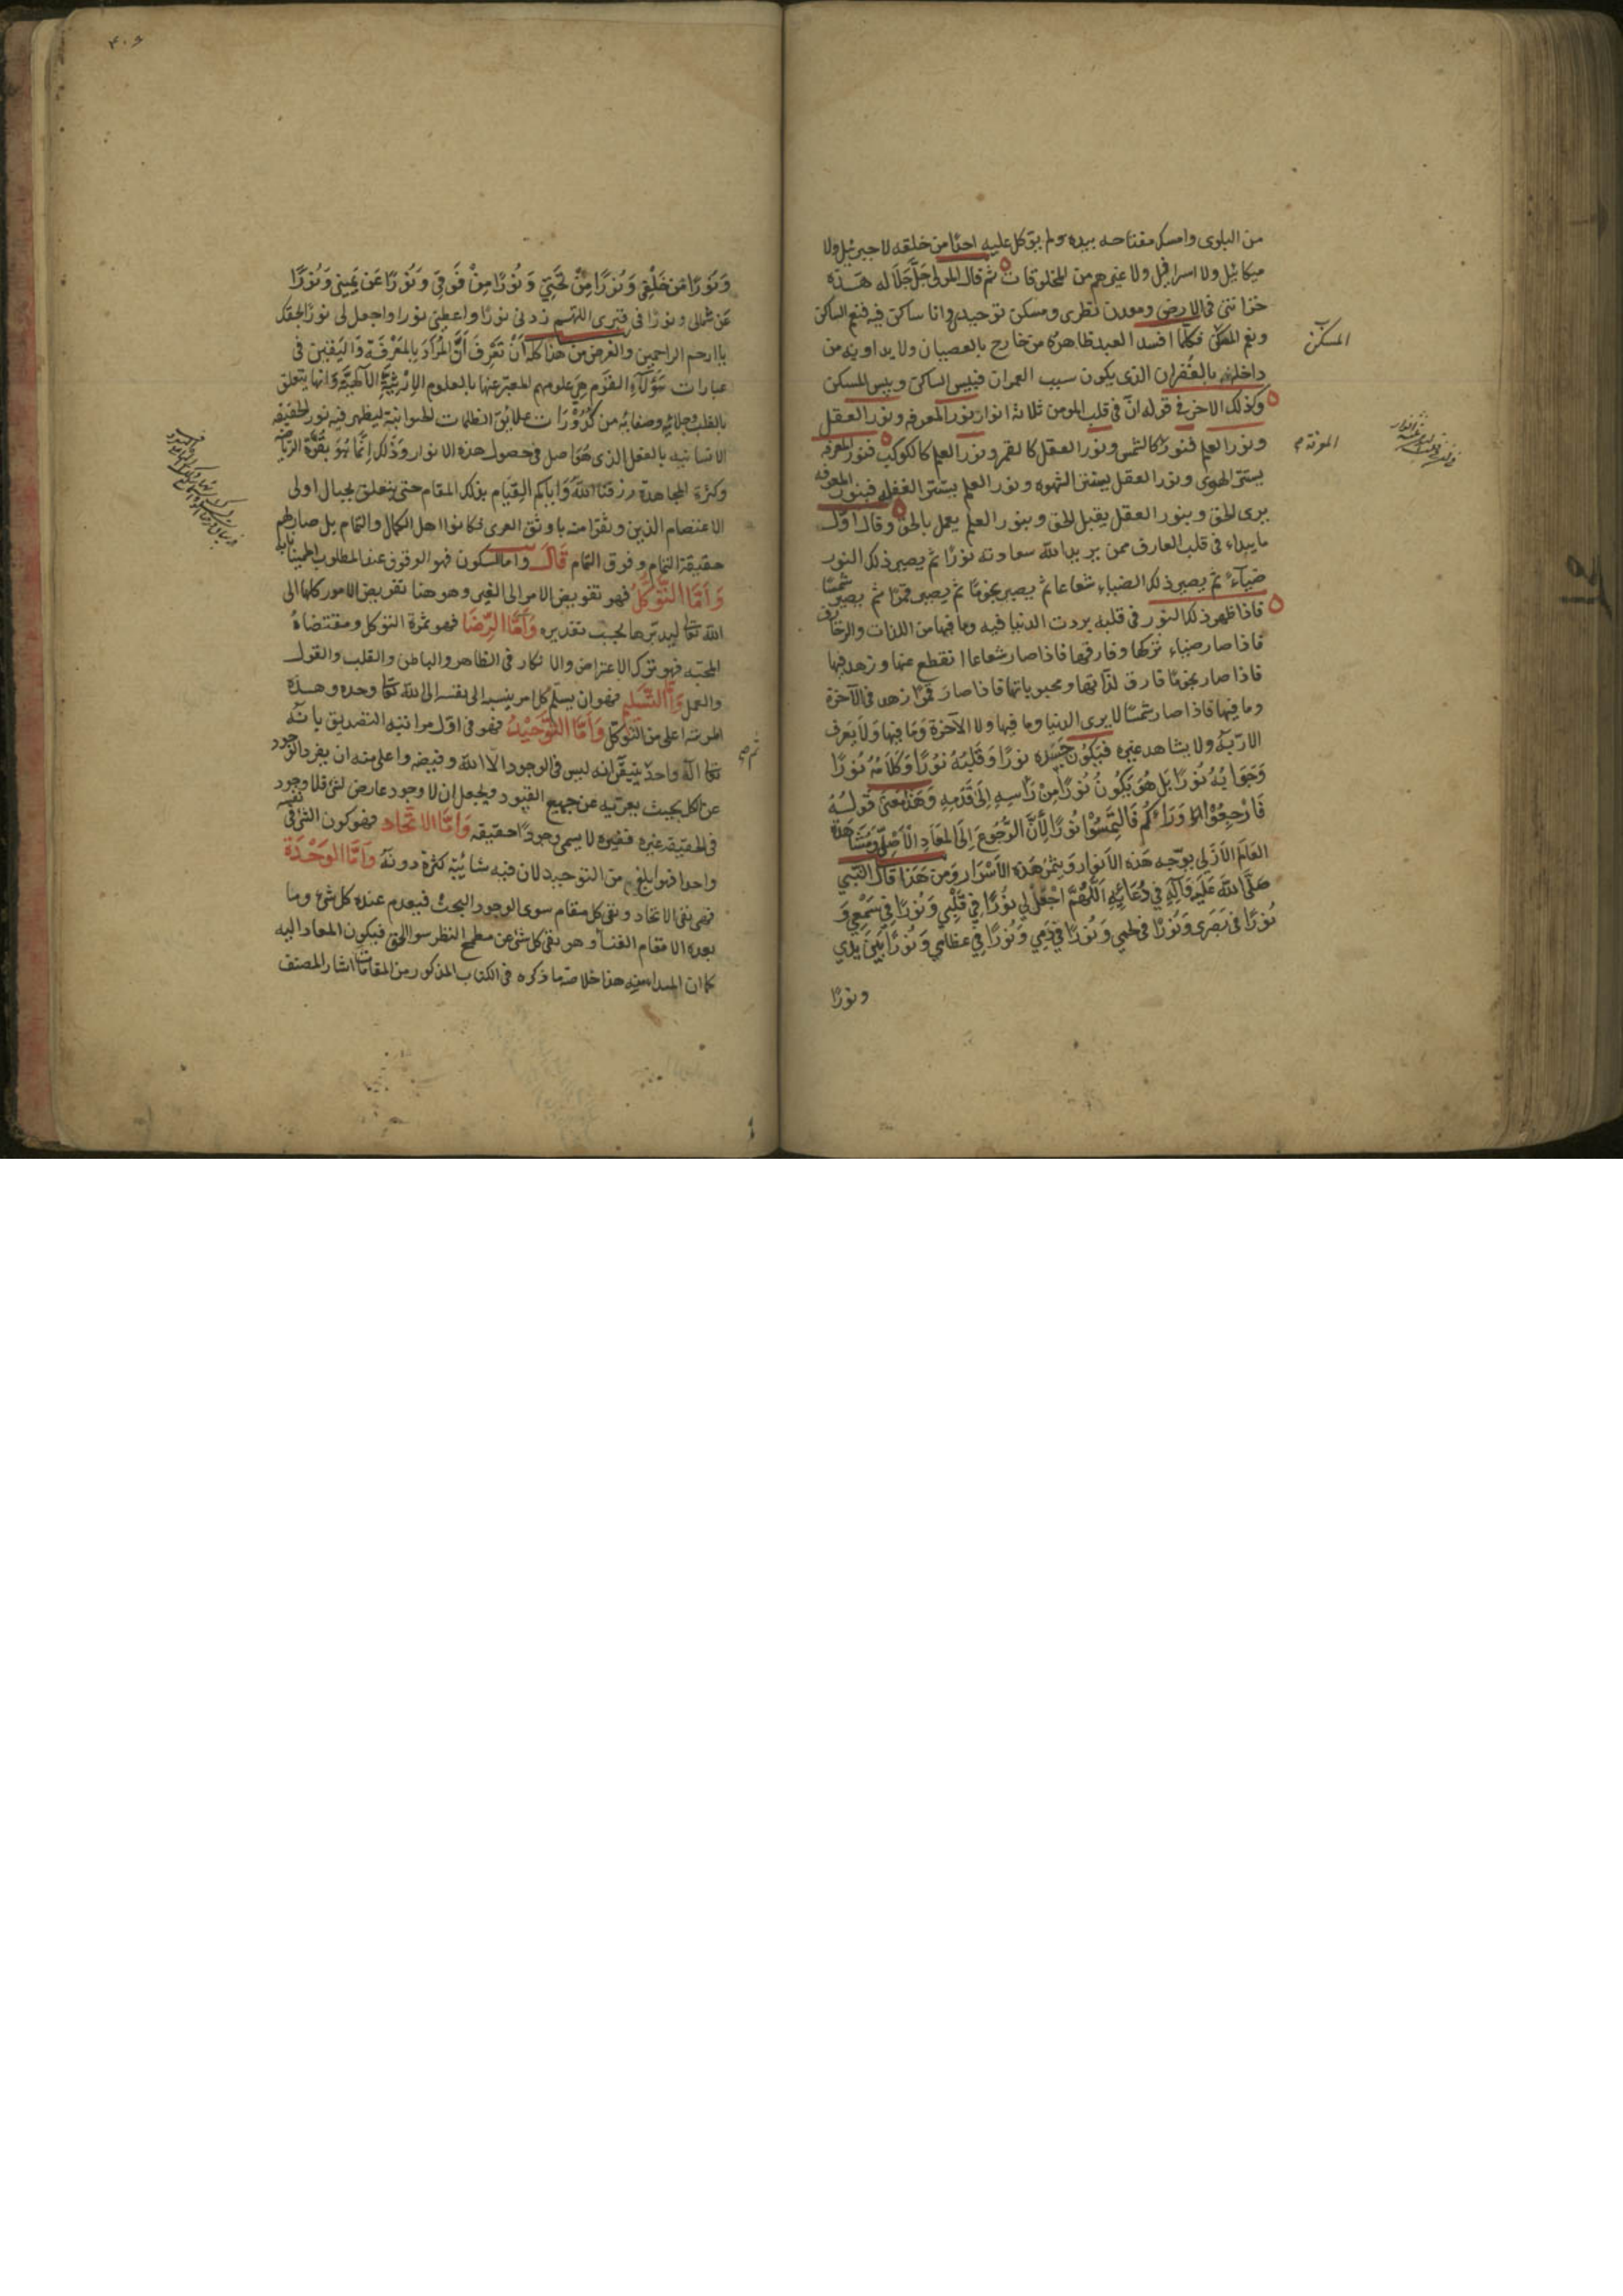 من البلوى وامسك مفتاحه بيده ولم يتوكل عليه احدًا من خلقه لا جبرئيل ولا
ميكائيل ولا اسرافيل ولا غيرهم من المخلوقات ثم قال المولى جَلَّ جَلَاله هَذه
خزانتى فى الارض ومعدن نظرى ومسكن توحيدى وانا ساكن فيه فنعم الساكن
ونعم المسكن فكلّما افسد العبد ظاهره من خارج بالعصيان ولا يداويه من
داخله بالغفران الذى يكون سبب العمران فبيس الساكن وبيس المسكن
وكذلك الاخر فى قوله انّ فى قلب المومن ثلاثة انوار نور المعرفه ونور العقل
ونور العلم فنور كالشمس ونور العقل كالقمر ونور العلم كالكوكب فنور المعرفه
يستر الهوى ونور العقل يستر الشهوه ونور العلم يستر الغفله فبنور المعرفه
يرى الحق وبنور العقل يقبل الحق وبنور العلم يعمل بالحق وقال اوّل
ما يبداء فى قلب العارف ممن يريد الله سعادته نورًا ثم يصير ذلك النور
ضياءً ثم يصير ذلك الضياء شعاعا ثم يصير نجومًا ثم يصير قمرًا ثم يصير شمسًا
فاذا ظهر ذلك النور فى قلبه بردت الدنيا فيه وما فيها من اللذات والزخارف
فاذا صار ضياء تركها وفارقها فاذا صار شعاعا انقطع عنها وزهد فيها
فاذا صار نجومًا فارق لذّاتها ومحبوباتها فاذا صار قمرًا زهد فى الآخرة
وما فيها فاذا صار شمسًا لا يرى الدنيا وما فيها ولا الآخرة وَمَا فيها وَلَا يَعرف
الا ربّه ولا يشاهد غيره فَيَكُون جَسَده نورًا وَقَلبُهُ نُورًا وَكَلَامُهُ نُورًا
وَجَوَابُهُ نُورًا بَل هُوَ يَكُونُ نُورًا مِنْ رَأسِهِ اِلَى قَدَمِهِ وَهَذَا مَعنَى قَولُهُ
فَارْجِعُوْا وَرَاءَكُم فَالتَمِسُوْا نُورًا لِأَنَّ الرُّجُوعَ إِلَى المَعَادِ الْاَصْلِىّ وَمُشَاهَدَة
العَالَم الاَزَلى يوجّبه هَذه الاَنوار وَيثمر هَذه الاَسْرَار وَمِن هَذا قَالَ النَّبى
صَلَّى اللهُ عَلَيهِ وَآلِهِ فِي دُعَائِهِ اَللّهُمَّ اجْعَلْ لِي نُورًا فِي قَلْبِي وَنُورًا فِي سَمْعِي وَ
نُورًا فى بَصَرى وَنُورًا فى لحمِي وَنُورًا فِي دَمِي وَنُورًا فِي عظامِي وَنُورًا بَيْنَ يَدَيَّ
ونورًا
المسكن
المعرفة
وَنُورًا مِن خَلْفِى وَنُورًا مِنْ تَحْتِى وَنُورًا مِنْ فَوقِى وَنُورًا عَن يَمينى وَنُورًا
عَن شمالى ونورًا فى قبرى اللهم زدنى نورًا واعطنى نورا واجعل لى نورًا بحقك
ياارحم الراحمين والغرض من هَذا كله أن تَعرِفَ اَنَّ المُرَادَ بِالمَعْرِفَة وَاليَقين فى
عبارات هَؤُلآءِ القَوم هِىَ علومهم المعبّر عنها بالعلوم الإرثيّةِ الآلهيّة وانها يتعلق
بالقلب وجلائه وصفائه من كُدُورَات علائق الظلمات الحيوانية ليظهر فيه نور الحقيقه
الانسانيه بالعقل الذى هُوَ اصل فى حصول هذه الانوار وَذلك اِنَّمَا هُوَ بقُوّة الرياضه
وكثرة المجاهدة رزقنا اللهُ وَاياكم القيام بذلك المقام حتى يتعلق بحبال اولى
الاعتصام الذين وثقوا منه باوثق العرى فكانوا اهل الكمال والتمام بل صار لهم
حقيقة التمام وفوق التمام قَالَ واما السكون فهو الوقوف عند المطلوب اطمينانا به
وَاَمَّا التَوَكُّلُ فهو تفويض الامر الى الغير وهو هنا تفويض الامور كلها الى
الله تعالى ليدبّرها بحسب تقديره وَاَمَّا الرِّضَا فهو ثمرة التوكل ومقتضاهُ
المحبّه فهو ترك الاعتراض والانكار فى الظاهر والباطن والقلب والقول
والعمل وَاَمَّا التَّسْلِيم فهو ان يسلّم كل امر ينسبه الى نفسه الى الله تعالى وحده وهذه
المرتبه اعلى من التّوكّل وَاَمَّا التَّوْحِيْدُ فهو فى اوّل مراتبه التصديق بانّه
تعالى اله واحد يتيقّن انه ليس فى الوجود الّا الله وفيضه واعلى منه ان يفرد الوجود
عن الكل بحيث يعرّيه عن جميع القيود ويجعل ان لا وجود عارض لشئ فلا وجود
فى الحقيقه غيره فغيره لا يسمى وجودًا حقيقه وَاَمَّا الاتّحَاد فهو كون الشئ فى نفسه
واحدا فهو ابلغ من التوحيد لان فيه شايبة كثرة دونَهُ وَاَمَّا الوَحْدَة
فهى نفى الاتحاد ونفى كل مقام سوى الوجود البحث فيعدم عنده كل شئ وما
بعده الا مقام الفنا وهو نفى كل شئ عن مطمح النظر سوا الحق فيكون المعاد اليه
كما ان المبدا منه هذا خلاصة ما ذكره فى الكتاب المذكور من المقامات اشار المصنف